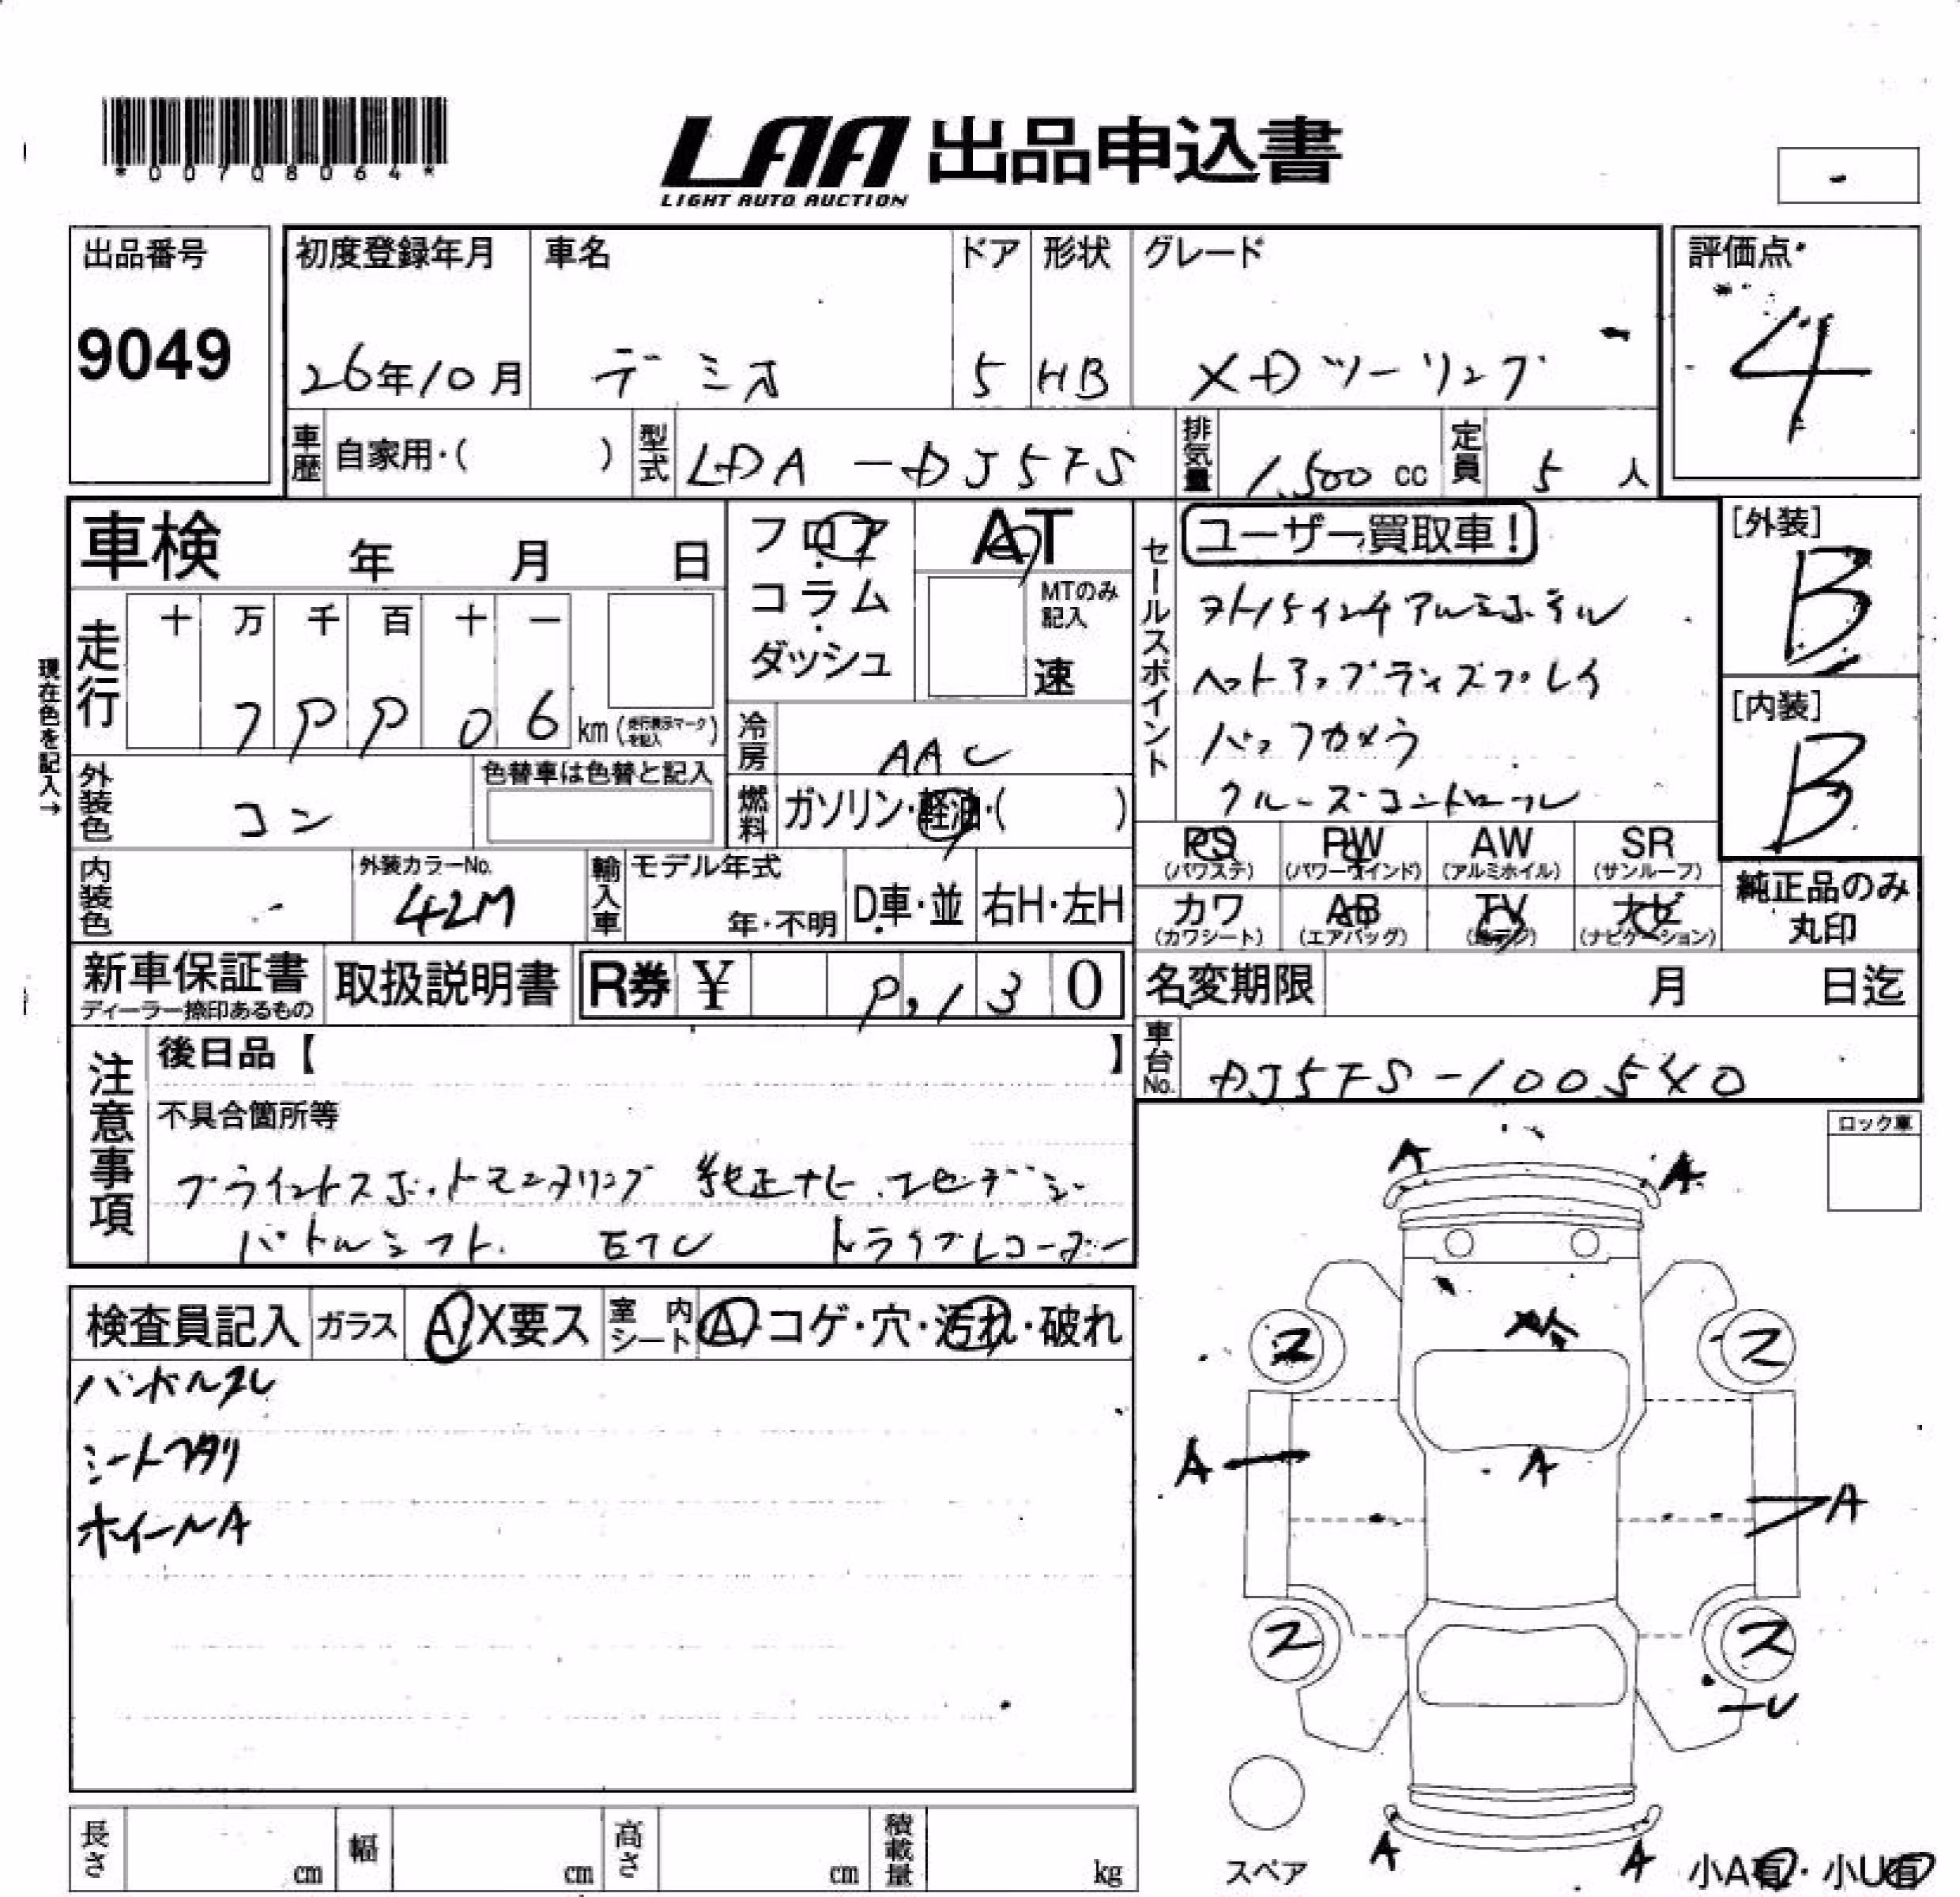 *00708064*
LAA 出品申込書
LIGHT AUTO AUCTION
-
出品番号
9049
初度登録年月
26年10月
車名
デミオ
ドア
5
形状
HB
グレード
XDツーリング
評価点
4
車歴 自家用・( )
型式 LDA-DJ5FS
排気量 1,500 cc
定員 5 人
車検 年 月 日
フロア
コラム
ダッシュ
AT
MTのみ記入
速
走行
十 万 千 百 十 一
06 km (走行表示マークを記入)
現在色を記入→
冷房 AAC
外装色 コン
色替車は色替と記入
燃料 ガソリン・軽油・( )
内装色
外装カラーNo.
42M
輸入車
モデル年式
年・不明
D車・並
右H・左H
セールスポイント
ユーザー買取車!
15インチアルミホイル
ヘットアップディスプレイ
バックカメラ
クルーズコントロール
[外装]
B
[内装]
B
PS (パワステ)
PW (パワーウインド)
AW (アルミホイル)
SR (サンルーフ)
カワ (カワシート)
AB (エアバッグ)
TV (地デジ)
ナビ (ナビゲーション)
純正品のみ丸印
新車保証書
ディーラー捺印あるもの
取扱説明書
R券 ¥ 130
名変期限 月 日迄
車台No. DJ5FS-100540
注意事項
後日品【 】
不具合箇所等
ブラインドスポットモニタリング 純正ナビ
パドルシフト ETC ドライブレコーダー
ロック車
検査員記入
ガラス A・X要ス
室内シート A・コゲ・穴・汚れ・破れ
シートヘタリ
ホイールA
A
A
A
A
A
A
U
A
A
スペア
小A有・小U有
長さ cm
幅 cm
高さ cm
積載量 kg